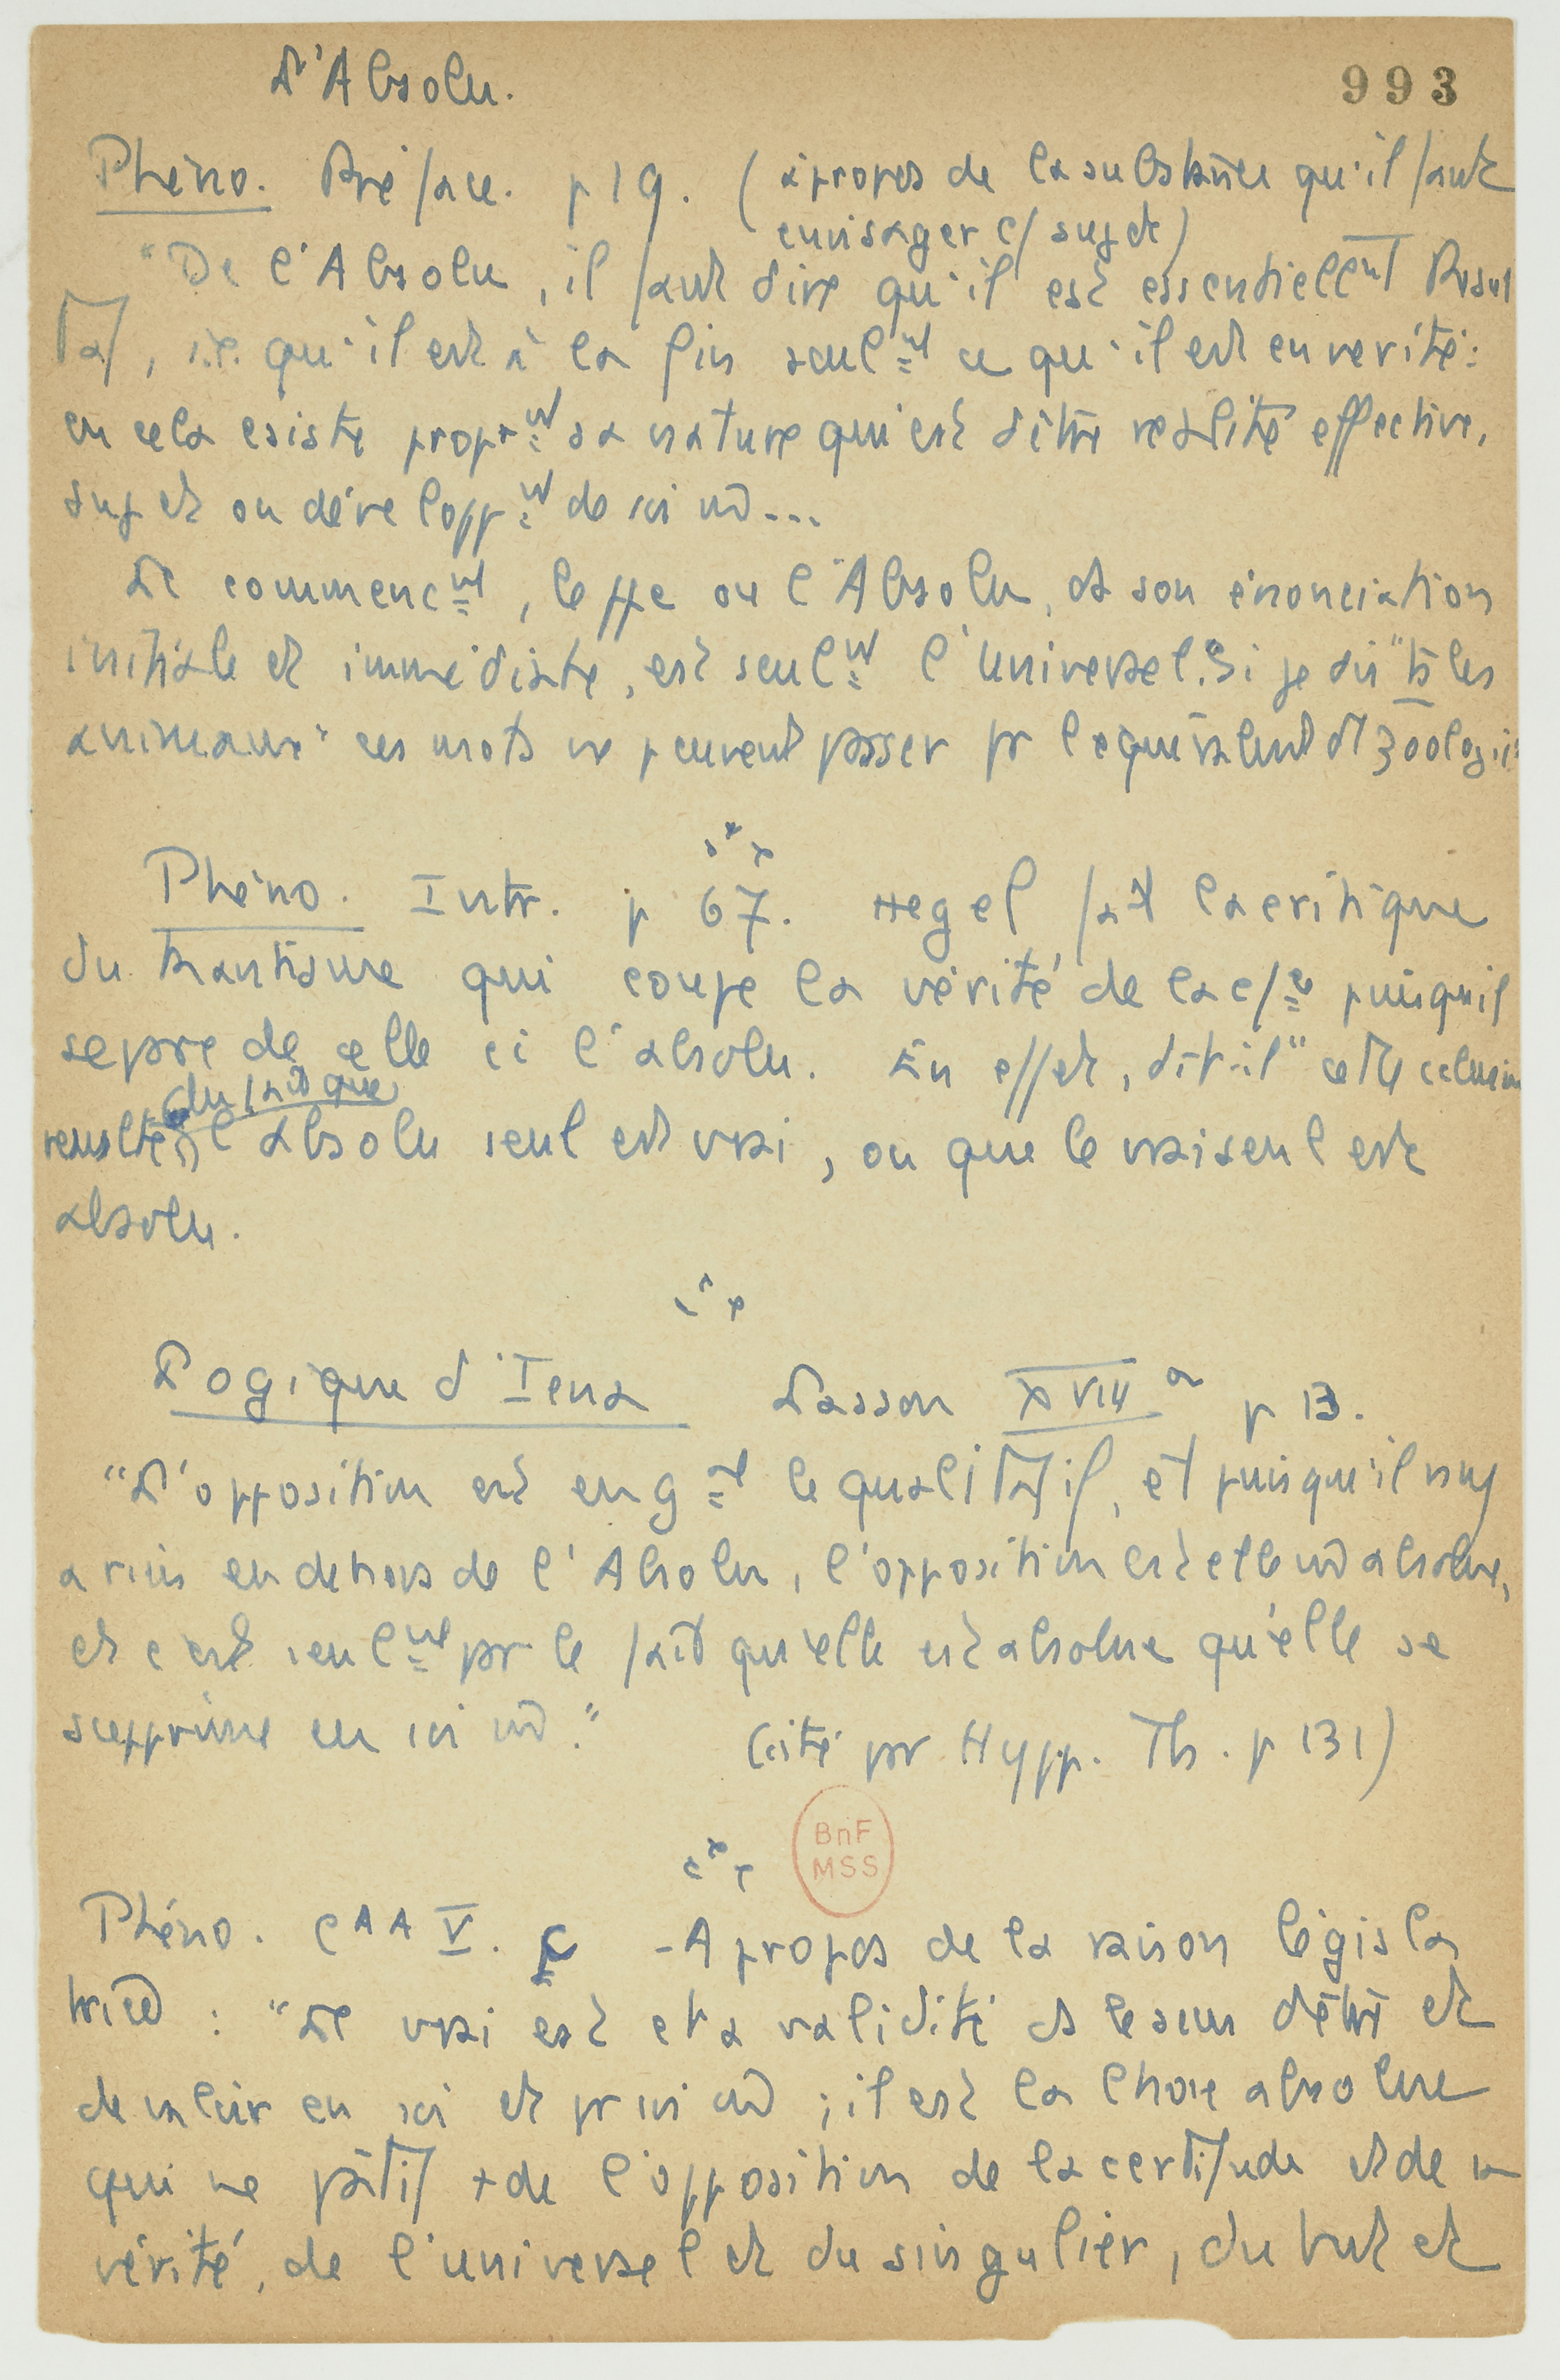 L'Absolu.
993
Phéno. Préface. p 19. (à propos de la substance qu'il faut
envisager c/ sujet)
"De l'Absolu, il faut dire qu'il est essentiellemt Résul
tat, i.e. qu'il est à la fin seulmt ce qu'il est en vérité:
en cela existe proprmt sa nature qui est d'être réalité effective,
sujet ou développmt de soi m̂...
Le commencmt, le ppe ou l'Absolu, ds son énonciation
initiale et immédiate, est seulmt l'universel. Si je dis "ts les
animaux" ces mots ne peuvent passer pr l'équivalent d'1 zoologie
Phéno. Intr. p 67. Hegel fait la critique
du kantisme qui coupe la vérité de la c/ce puisqu'il
sépare de celle ci l'absolu. En effet, dit-il "cette conclusion
du fait que
résulte l'absolu seul est vrai, ou que le vrai seul est
absolu.
Logique d'Iena Lasson XVIII a p 13.
"L'opposition est en gal le qualitatif, et puisqu'il n'y
a rien en dehors de l'Absolu, l'opposition est elle m̂ absolue,
et c'est seulmt par le fait qu'elle est absolue qu'elle se
supprime en soi m̂."
(cité par Hypp. Th. p 131)
BnF
MSS
Phéno. C AA V. c - A propos de la raison législa
trice : "Le vrai est et a validité ds le sens d'être et
de valoir en soi et pr soi m̂ ; il est la Chose absolue
qui ne pâtit + de l'opposition de la certitude et de sa
vérité, de l'universel et du singulier, du but et